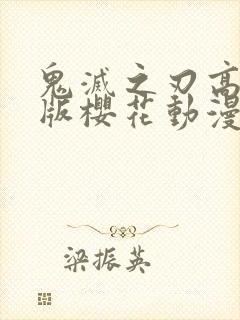 鬼滅之刃高
版櫻花動漫
梁振英